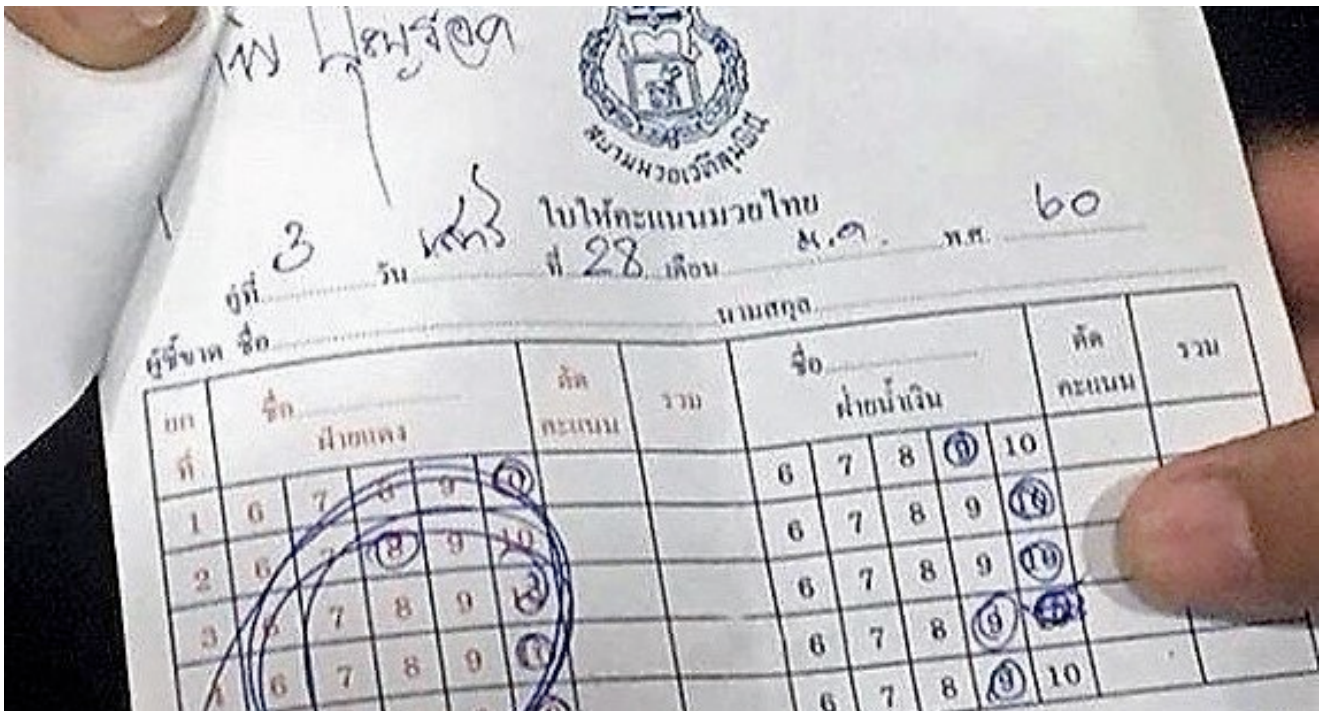 สนามมวยเวทีลุมพินี
ใบให้คะแนนมวยไทย
คู่ที่ 3 วัน เสาร์ ที่ 28 เดือน ม.ค. พ.ศ. ๖๐
ผู้ชี้ขาด ชื่อ นามสกุล
ยก ชื่อ ตัด รวม ชื่อ ตัด รวม
ที่ ฝ่ายแดง คะแนน ฝ่ายน้ำเงิน คะแนน
1 6 7 8 9 10 6 7 8 9 10
2 6 7 8 9 10 6 7 8 9 10
3 6 7 8 9 10 6 7 8 9 10
4 6 7 8 9 10 6 7 8 9 10
6 7 8 9 10